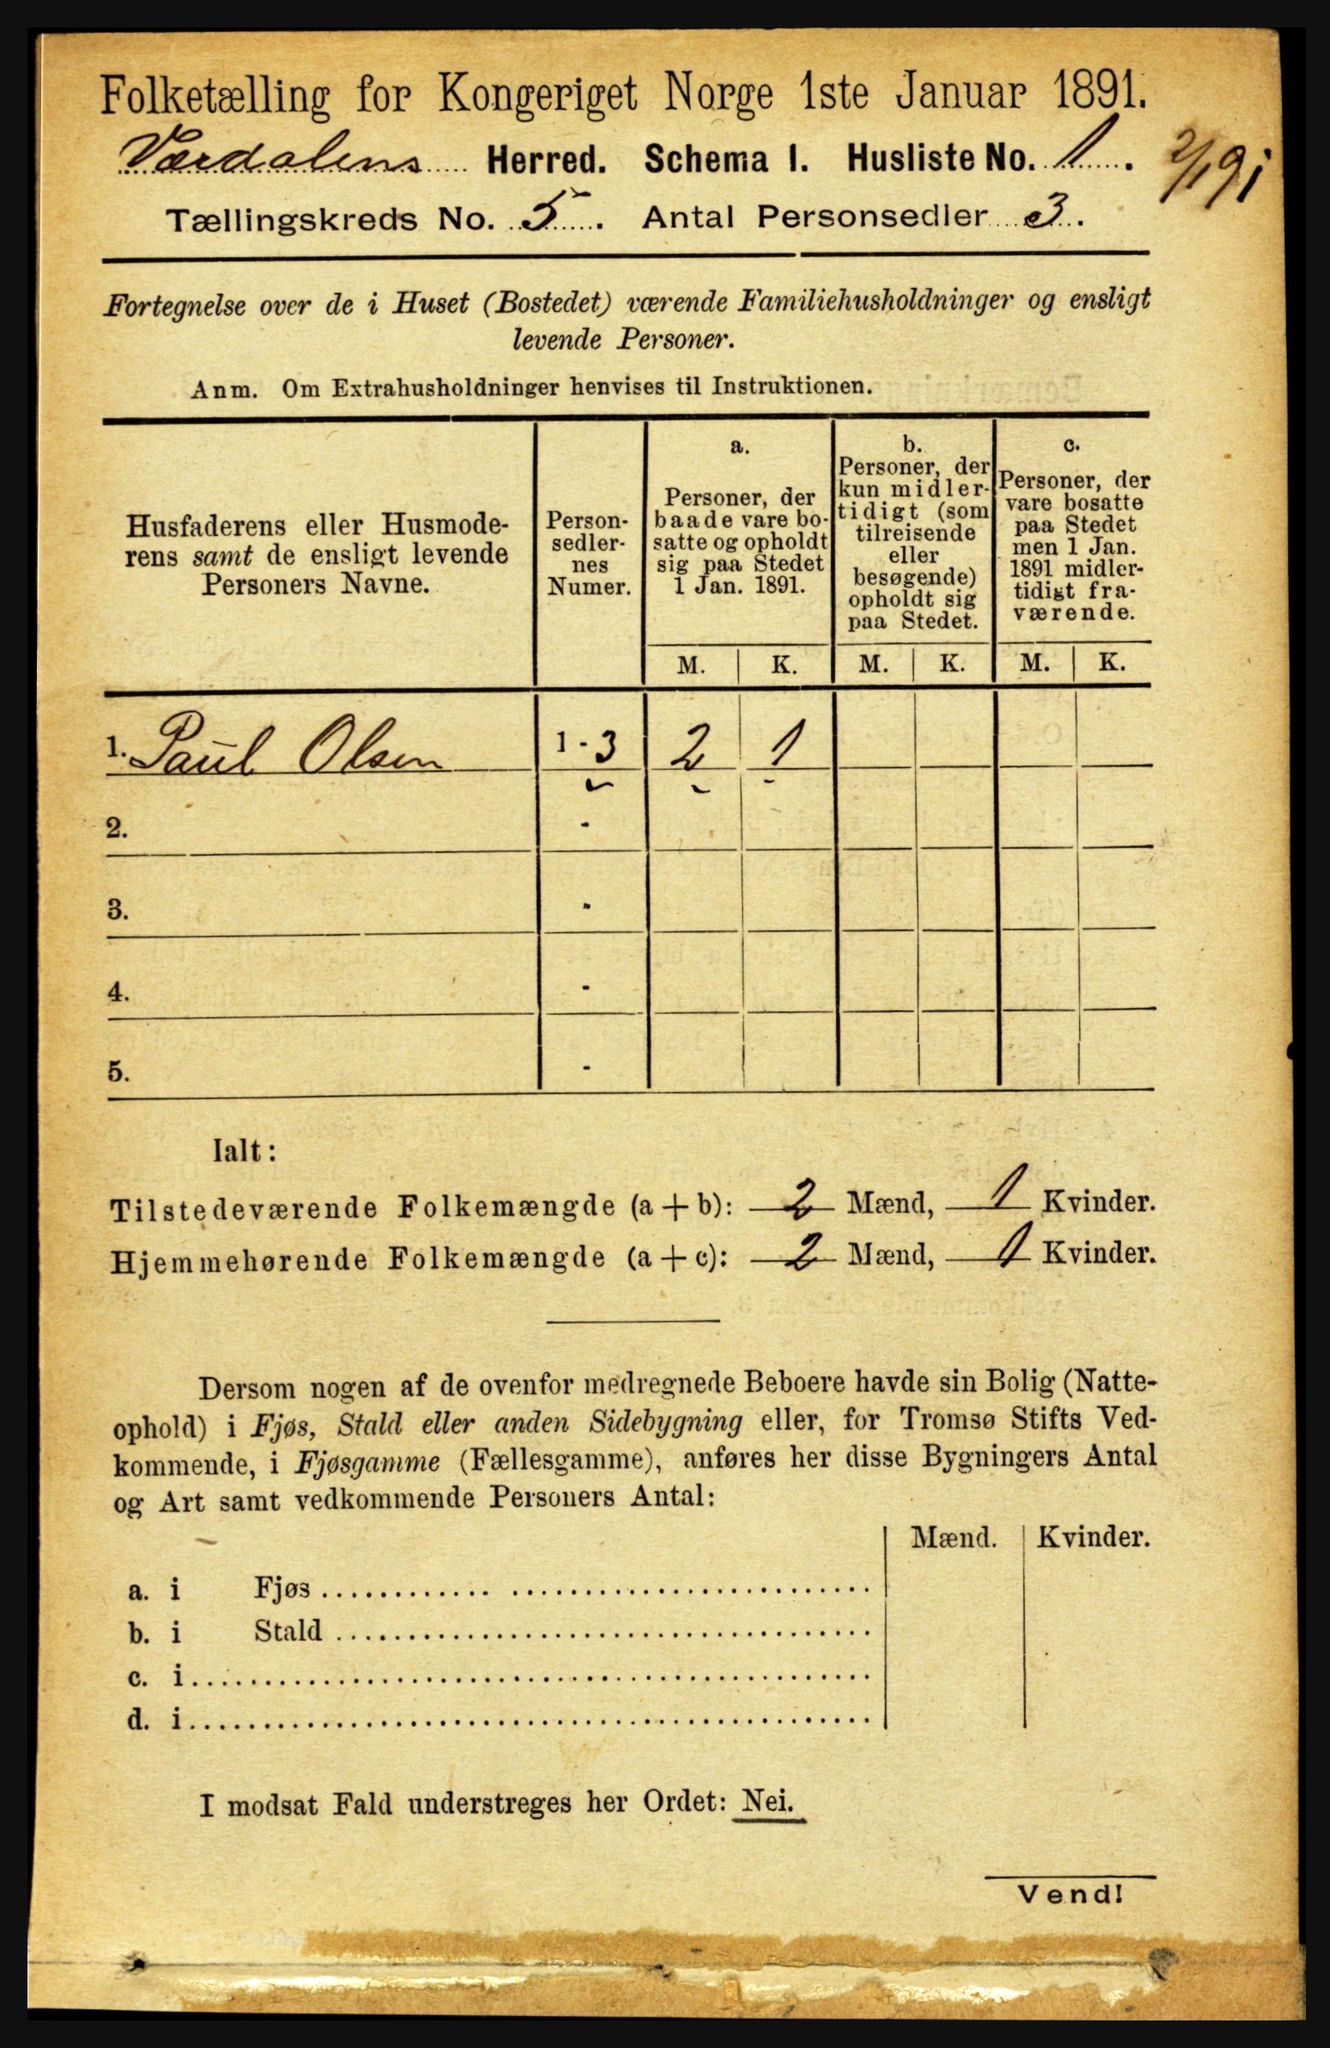 Folketælling for Kongeriget Norge 1ste Januar 1891.
Værdalens Herred. Schema I. Husliste No. 1.
Tællingskreds No. 5. Antal Personsedler 3.
Fortegnelse over de i Huset (Bostedet) værende Familiehusholdninger og ensligt
levende Personer.
Anm. Om Extrahusholdninger henvises til Instruktionen.
Husfaderens eller Husmode-
rens samt de ensligt levende
Personers Navne.
Person-
sedler-
nes
Numer.
a.
Personer, der
baade vare bo-
satte og opholdt
sig paa Stedet
1 Jan. 1891.
b.
Personer, der
kun midler-
tidigt (som
tilreisende
eller
besøgende)
opholdt sig
paa Stedet.
c.
Personer, der
vare bosatte
paa Stedet
men 1 Jan.
1891 midler-
tidigt fra-
værende.
M. K. M. K. M. K.
1. Paul Olsen 1 - 3 2 1
2. -
3. -
4. -
5. -
Ialt:
Tilstedeværende Folkemængde (a + b): 2 Mænd, 1 Kvinder.
Hjemmehørende Folkemængde (a + c): 2 Mænd, 1 Kvinder.
Dersom nogen af de ovenfor medregnede Beboere havde sin Bolig (Natte-
ophold) i Fjøs, Stald eller anden Sidebygning eller, for Tromsø Stifts Ved-
kommende, i Fjøsgamme (Fællesgamme), anføres her disse Bygningers Antal
og Art samt vedkommende Personers Antal:
Mænd. Kvinder.
a. i Fjøs
b. i Stald
c. i
d. i
I modsat Fald understreges her Ordet: Nei.
Vend!